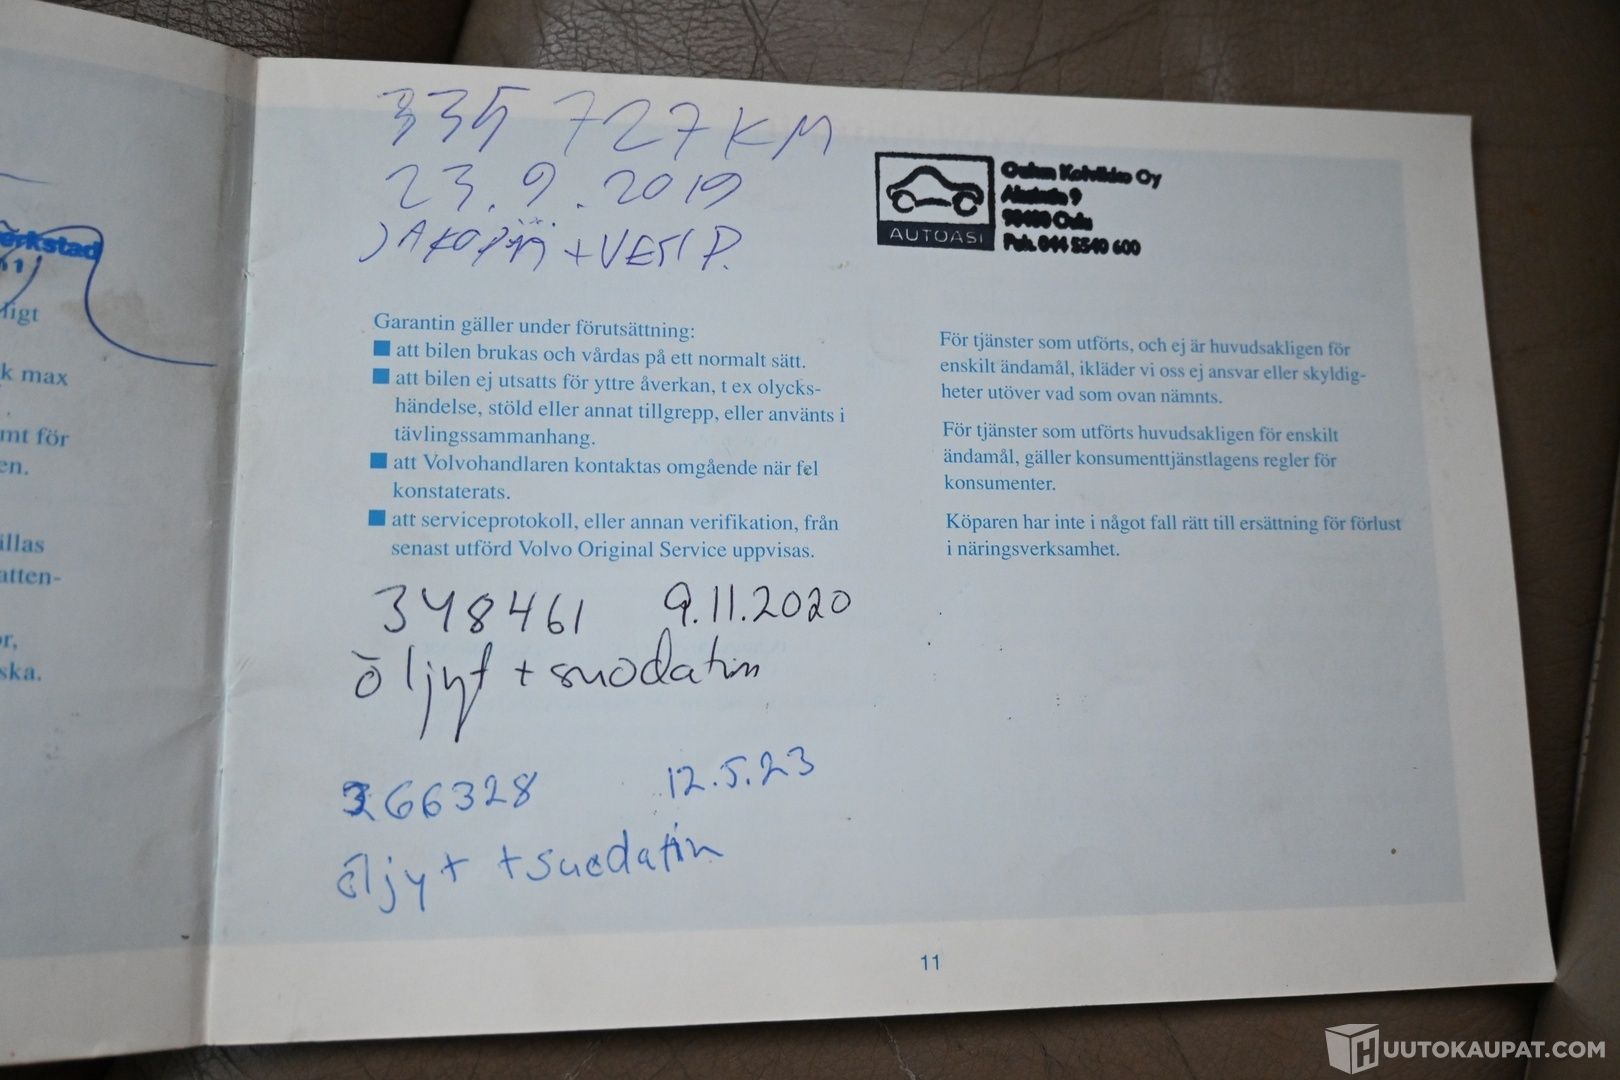 335 727 KM
23.9.2019
JAKOPÄÄ + VESI P.
AUTOASI
Oulun Koivikko Oy
9
Oulu
Puh. 044 5540 600
erkstad
ligt
k max
mt för
en.
illas
atten-
or,
ska.
Garantin gäller under förutsättning:
■ att bilen brukas och vårdas på ett normalt sätt.
■ att bilen ej utsatts för yttre åverkan, t ex olycks-
händelse, stöld eller annat tillgrepp, eller använts i
tävlingssammanhang.
■ att Volvohandlaren kontaktas omgående när fel
konstaterats.
■ att serviceprotokoll, eller annan verifikation, från
senast utförd Volvo Original Service uppvisas.
För tjänster som utförts, och ej är huvudsakligen för
enskilt ändamål, ikläder vi oss ej ansvar eller skyldig-
heter utöver vad som ovan nämnts.
För tjänster som utförts huvudsakligen för enskilt
ändamål, gäller konsumenttjänstlagens regler för
konsumenter.
Köparen har inte i något fall rätt till ersättning för förlust
i näringsverksamhet.
348461 9.11.2020
öljyt + suodatin
366328 12.5.23
öljyt + suodatin
11
HUUTOKAUPAT.COM